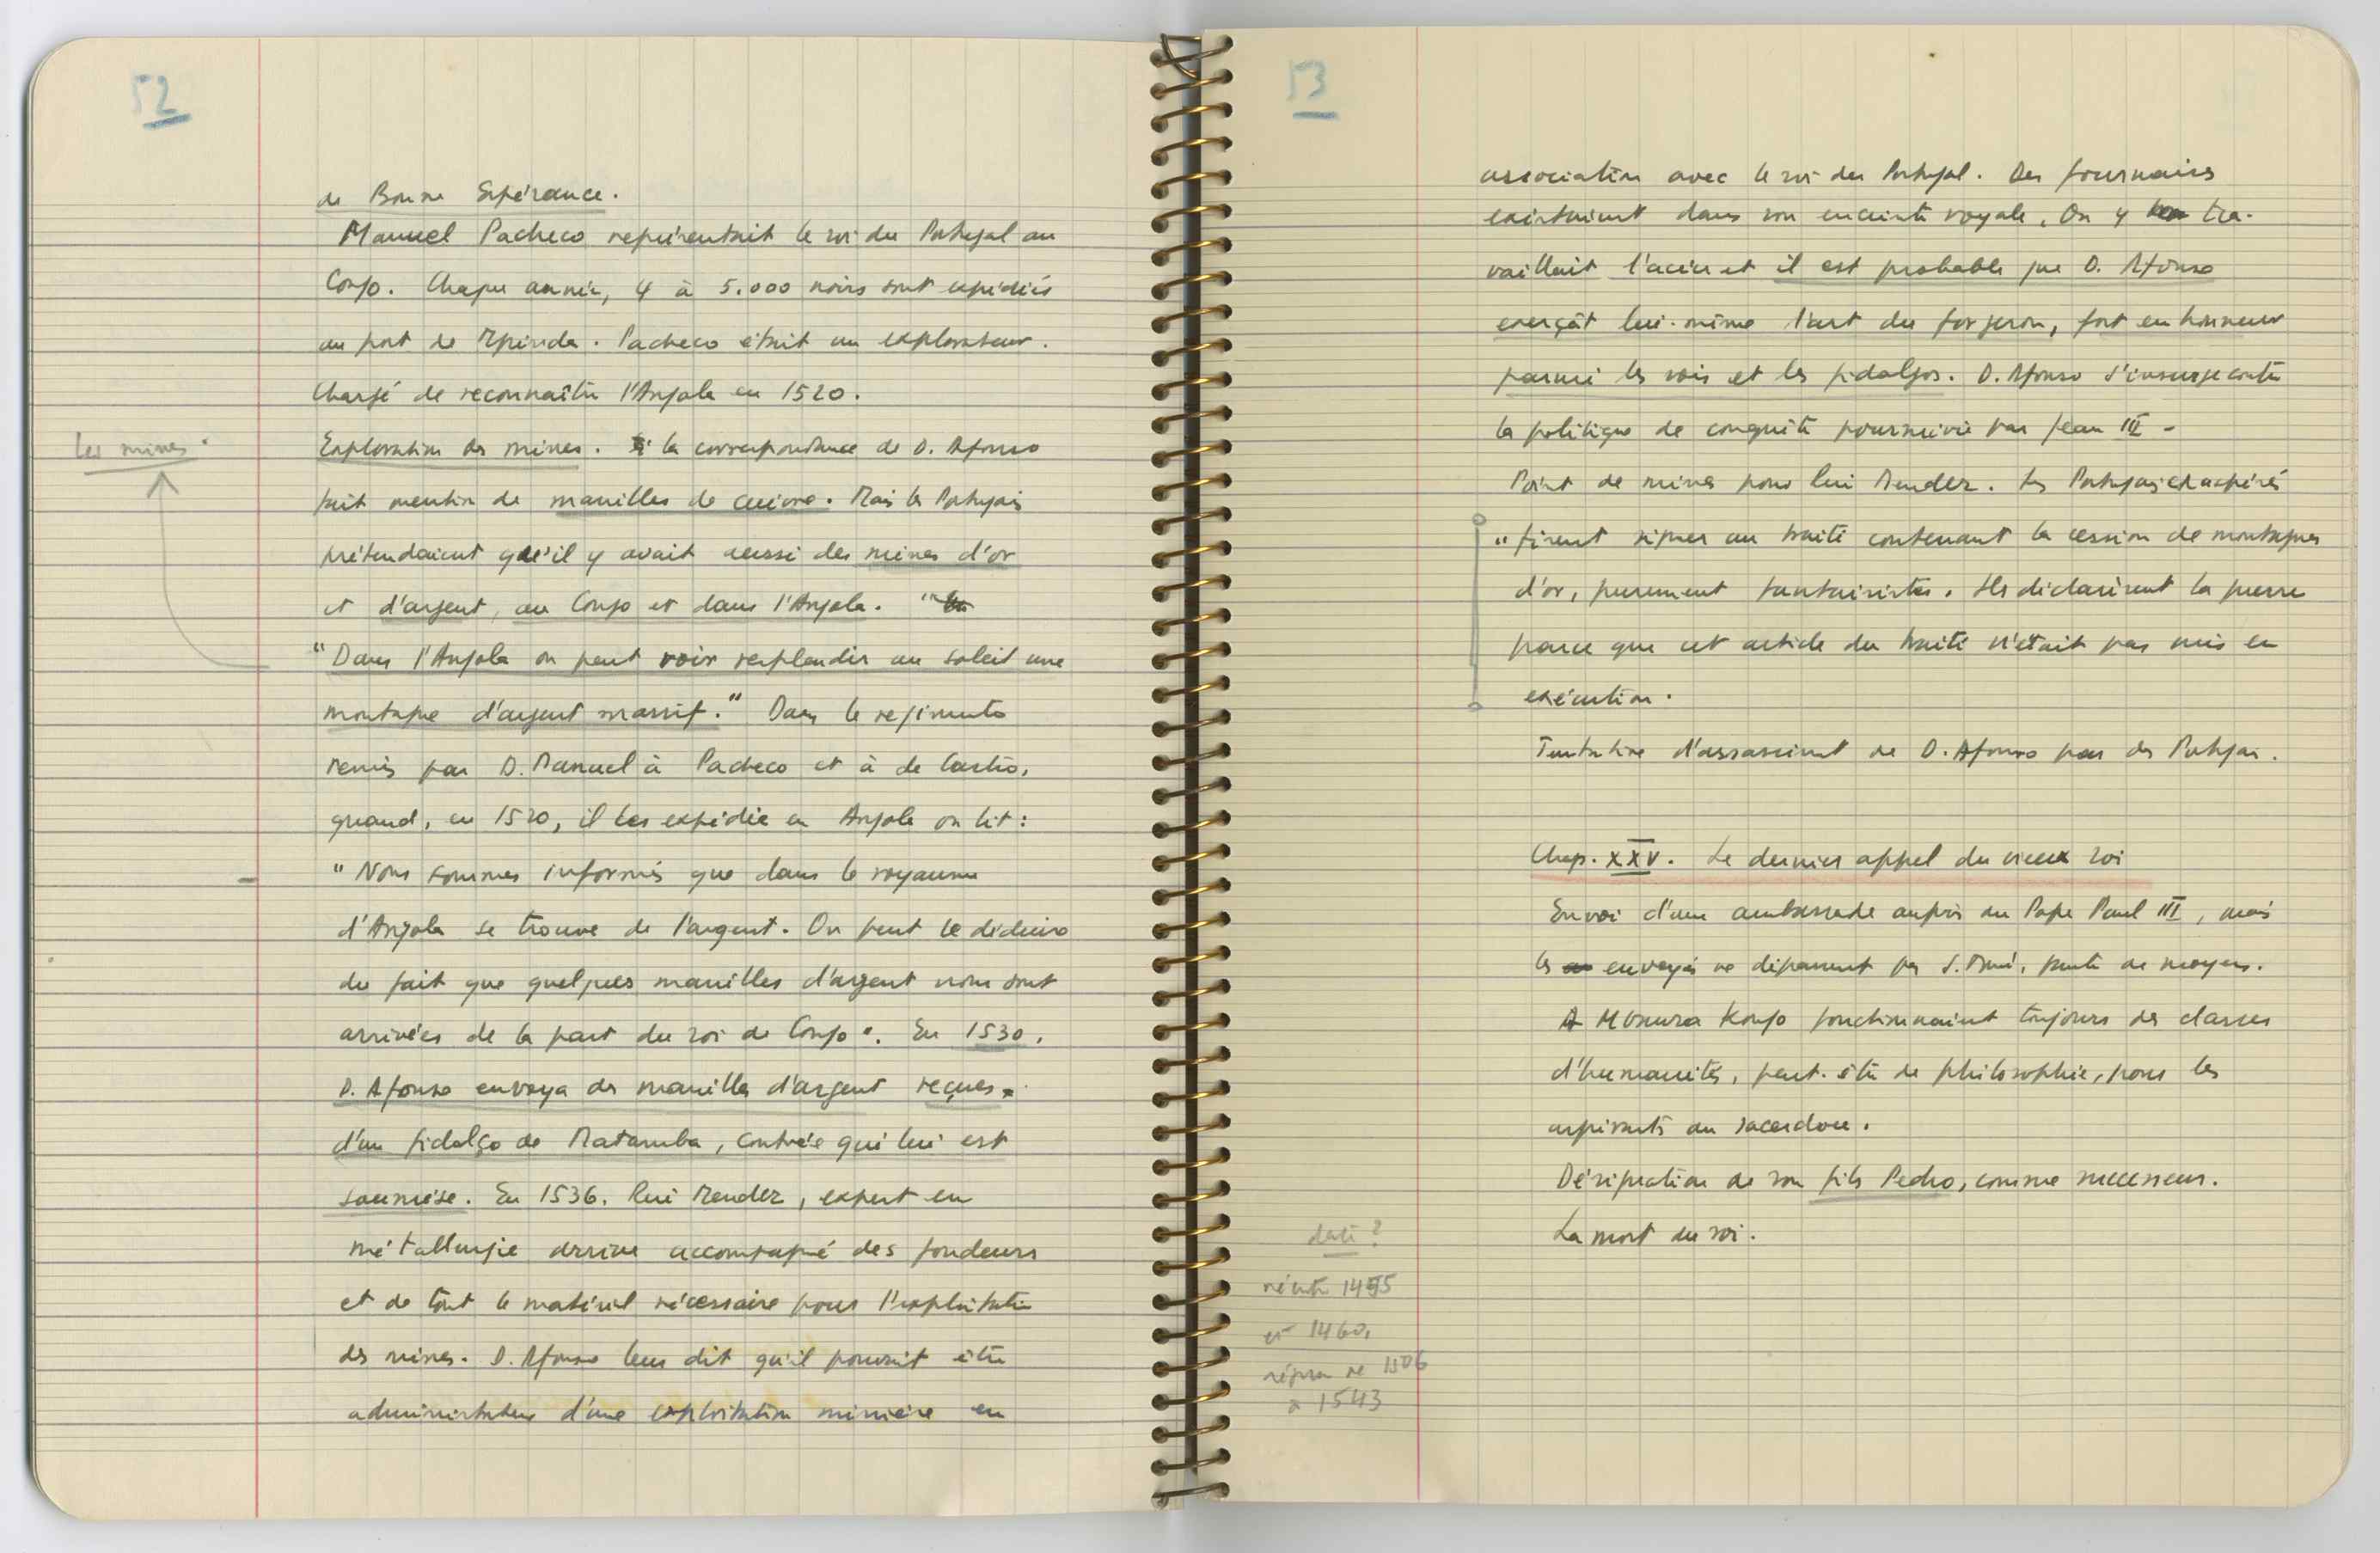 52
de Bonne Espérance.
Manuel Pacheco représentait le roi du Portugal au
Congo. Chaque année, 4 à 5.000 noirs sont expédiés
au port de Mpinda. Pacheco était un explorateur.
Chargé de reconnaître l'Angola en 1520.
Les mines.
Exploration des mines. la correspondance de D. Afonso
fait mention de manilles de cuivre. Mais les Portugais
prétendaient qu'il y avait aussi des mines d'or
et d'argent, au Congo et dans l'Angola. "
"Dans l'Angola on peut voir resplendir au soleil une
montagne d'argent massif." Dans le regimento
remis par D. Manuel à Pacheco et à de Castro,
quand, en 1520, il les expédie en Angola on lit :
"Nous sommes informés que dans le royaume
d'Angola se trouve de l'argent. On peut le déduire
du fait que quelques manilles d'argent nous sont
arrivées de la part du roi de Congo". En 1530,
D. Afonso envoya des manilles d'argent reçues
d'un fidalgo de Matamba, contrée qui lui est
soumise. En 1536. Rui Mendez, expert en
métallurgie arrive accompagné des fondeurs
et de tout le matériel nécessaire pour l'exploitation
des mines. D. Afonso leur dit qu'il pourrait être
administrateur d'une exploitation minière en
53
association avec le roi du Portugal. Des fournaises
existaient dans son enceinte royale. On y tra-
vaillait l'acier et il est probable que D. Afonso
exerçât lui-même l'art du forgeron, fort en honneur
parmi les rois et les fidalgos. D. Afonso s'insurge contre
la politique de conquête poursuivie par Jean III -
Point de mines pour lui Mendez. Les Portugais exaspérés
"firent signer un traité contenant la cession de montagnes
d'or, purement fantaisistes. Ils déclarèrent la guerre
parce que cet article du traité n'était pas mis en
exécution.
Tentative d'assassinat de D. Afonso par des Portugais.
Chap. XXV. Le dernier appel du vieux roi
Envoi d'une ambassade auprès du Pape Paul III, mais
les envoyés ne dépassent pas S. Tomé, faute de moyens.
A Mbanza Kongo fonctionnaient toujours des classes
d'humanités, peut-être de philosophie, pour les
aspirants au sacerdoce.
Désignation de son fils Pedro, comme successeur.
La mort du roi.
date ?
né entre 1455
et 1460,
règne de 1506
à 1543